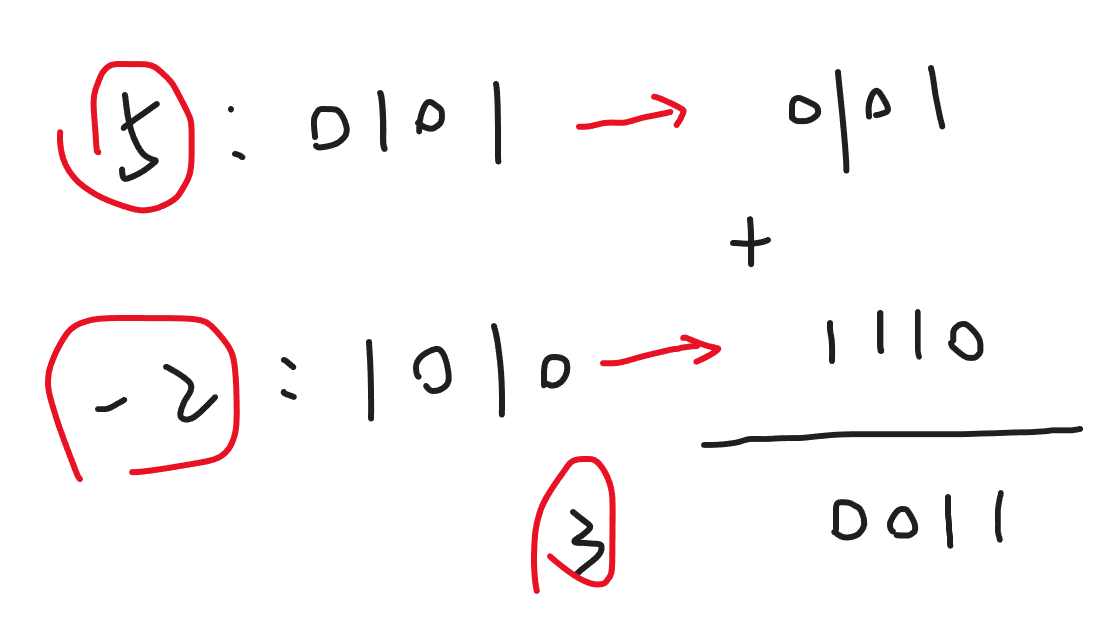 5 : 0101 → 0101
+
-2 : 1010 → 1110
3
0011